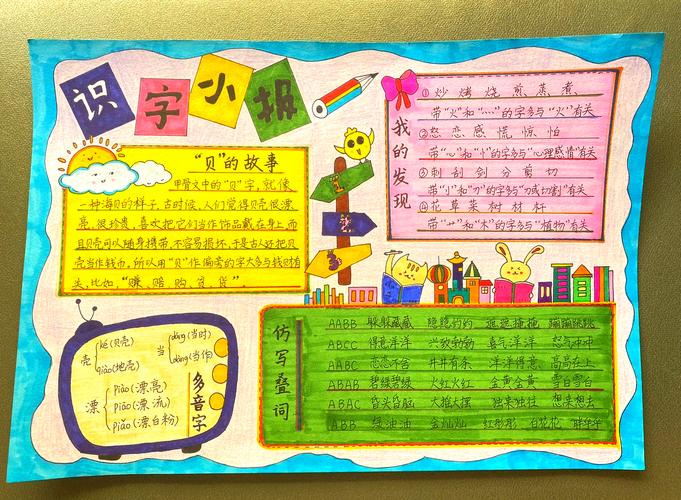 识字小报
"贝"的故事
甲骨文中的"贝"字,就像
一种海贝的样子。古时候,人们觉得贝壳很漂
亮,很珍贵,喜欢把它们当作饰品戴在身上,而
且贝壳可以随身携带,不容易损坏,于是古人还把贝
壳当作钱币,所以用"贝"作偏旁的字大多与钱财有
关,比如"赚、赔、购、贫、货"
1
2
3
我的发现
①炒 烤 烧 煎 蒸 煮
带"火"和"灬"的字多与"火"有关
②怒 恋 感 慌 惊 怕
带"心"和"忄"的字多与"心理感情"有关
③刺 刮 剑 分 剪 切
带"刂"和"刀"的字多与"刀或切割"有关
④花 草 菜 树 材 杆
带"艹"和"木"的字多与"植物"有关
多音字
壳
ké(贝壳)
qiào(地壳)
当
dāng(当时)
dàng(当作)
漂
piào(漂亮)
piāo(漂流)
piǎo(漂白粉)
仿写叠词
AABB 躲躲藏藏 隐隐约约 遮遮掩掩 蹦蹦跳跳
ABCC 得意洋洋 兴致勃勃 喜气洋洋 怒气冲冲
AABC 恋恋不舍 井井有条 洋洋得意 高高在上
ABAB 碧绿碧绿 火红火红 金黄金黄 雪白雪白
ABAC 昏头昏脑 大摇大摆 独来独往 想来想去
ABB 绿油油 金灿灿 红彤彤 白花花